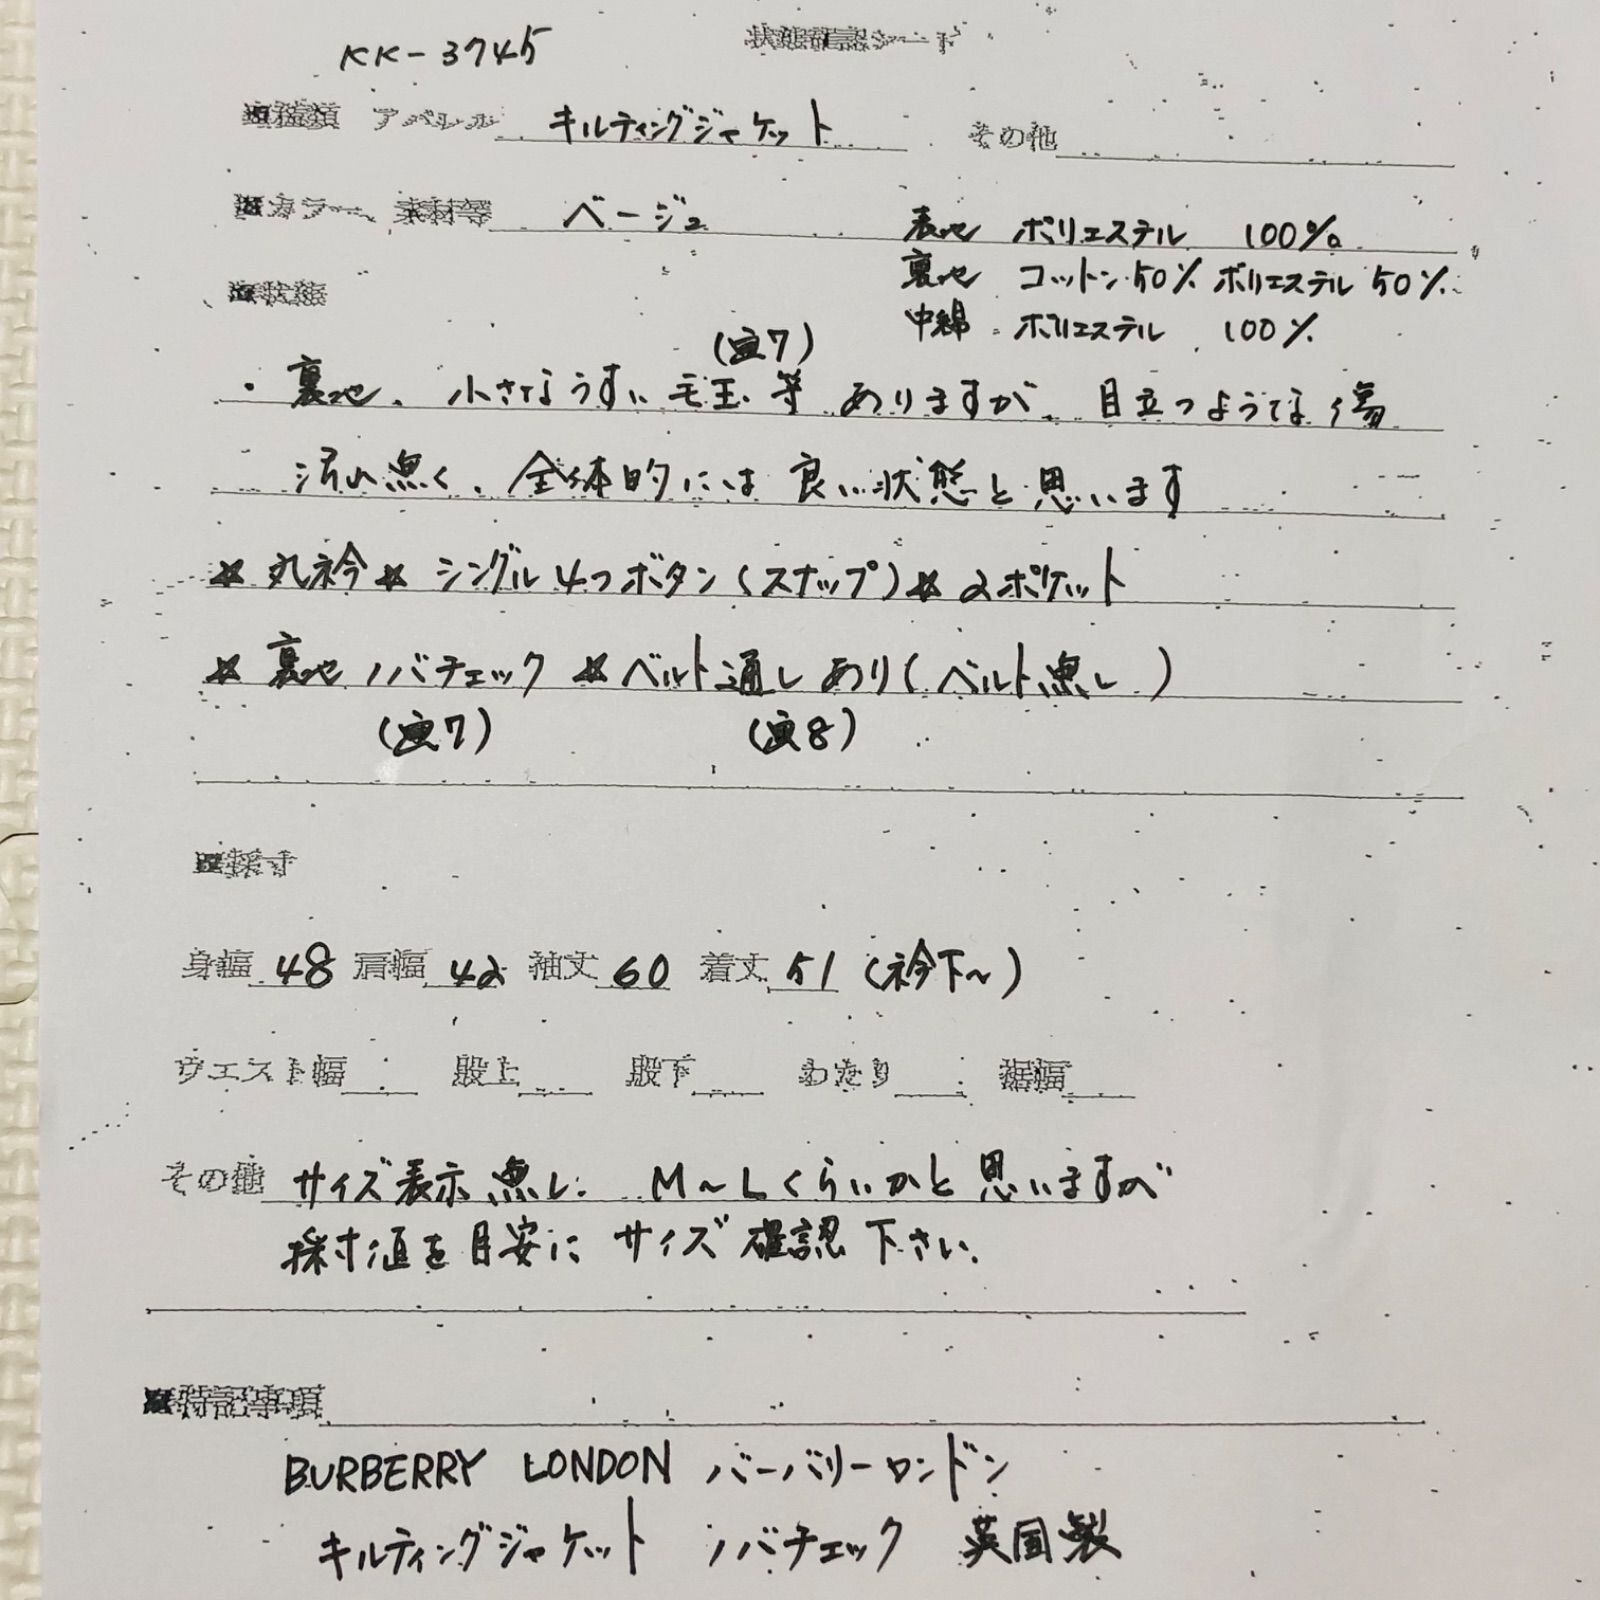 KK-3745 状態確認シート
■種類 アパレル キルティングジャケット その他
■カラー、素材等 ベージュ 表地 ポリエステル 100%
裏地 コットン50% ポリエステル50%
■状態 中綿 ポリエステル 100%
(画7)
・裏地、小さなうすい毛玉等ありますが、目立つような傷
汚れ無く、全体的には良い状態と思います
☆丸衿☆シングル4つボタン(スナップ)☆2ポケット
☆裏地ノバチェック☆ベルト通しあり(ベルト無し)
(画7) (画8)
■採寸
身幅 48 肩幅 42 袖丈 60 着丈 51 (衿下~)
ウエスト幅 股上 股下 わたり 裾幅
その他 サイズ表示無し. M~Lくらいかと思いますが
採寸値を目安にサイズ確認下さい.
■特記事項
BURBERRY LONDON バーバリーロンドン
キルティングジャケット ノバチェック 英国製